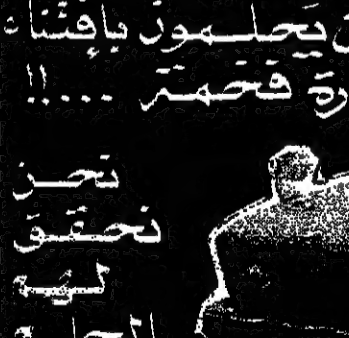 يحلمون بإقتناء
فخمة .....!!
نحن
نحقق
لهم